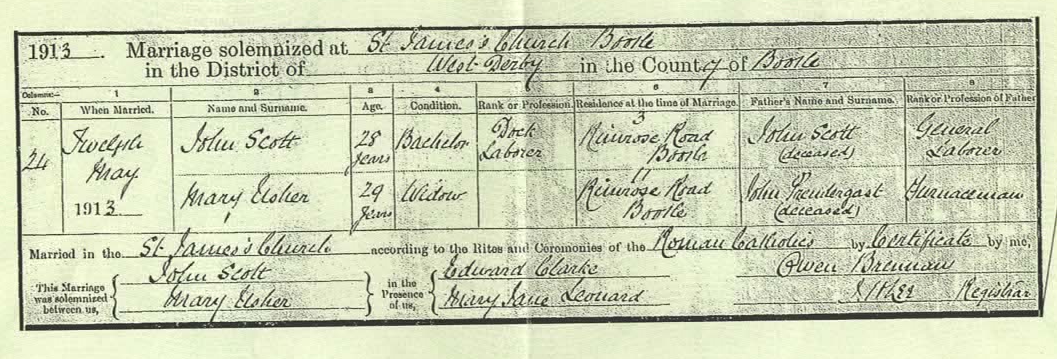 1913. Marriage solemnized at St James's Church Bootle
in the District of West Derby in the County of Bootle
Columns:— 1 2 3 4 5 6 7 8
No. When Married. Name and Surname. Age. Condition. Rank or Profession. Residence at the time of Marriage. Father's Name and Surname. Rank or Profession of Father
24 Twelfth May 1913 John Scott 28 years Bachelor Dock Laborer 3 Rimrose Road Bootle John Scott (deceased) General Laborer
Mary Usher 29 years Widow 11 Rimrose Road Bootle John Prendergast (deceased) Furnaceman
Married in the St James's Church according to the Rites and Ceremonies of the Roman Catholics by Certificate by me,
This Marriage was solemnized between us, John Scott in the Presence of us, Edward Clarke Owen Brennan
Mary Usher Mary Jane Leonard Registrar